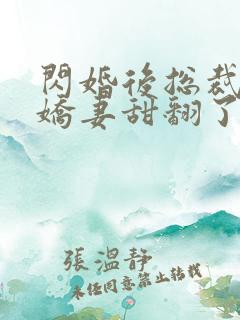 閃婚後總裁
嬌妻甜翻了
張溫靜
未经同意禁止转载